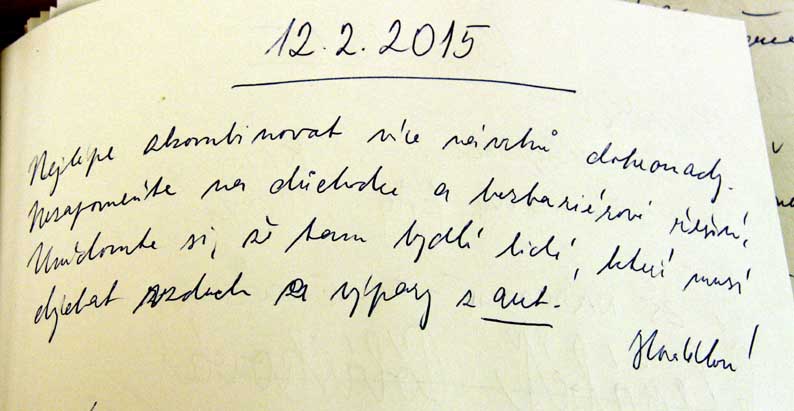 12.2.2015
Nejlépe zkombinovat více návrhů dohromady.
Nezapomeňte na důchodce a bezbariérové řešení,
Uvědomte si, že tam bydlí lidí, kteří musí
dýchat vzduch a výpary z aut.